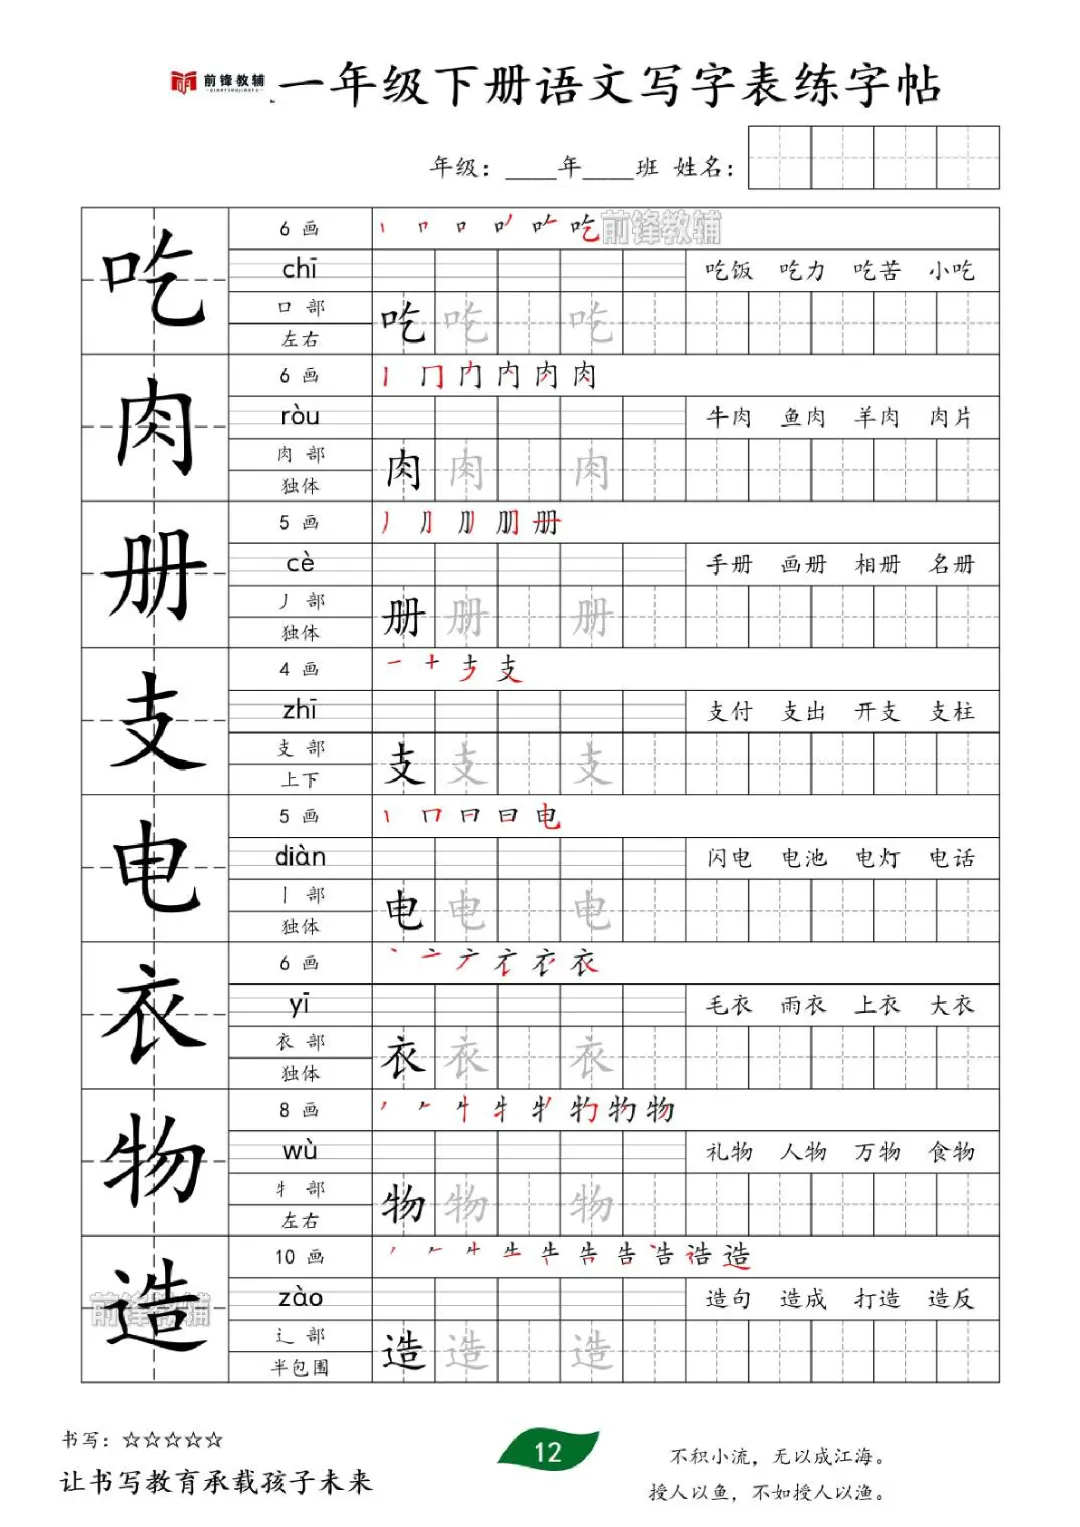 前锋教辅
一年级下册语文写字表练字帖
年级：____年____班 姓名：
吃
6 画
丨 口 口 吃
前锋教辅
chī
吃饭 吃力 吃苦 小吃
口 部
左右
吃 吃 吃
肉
6 画
丨 冂 内 内 肉 肉
ròu
牛肉 鱼肉 羊肉 肉片
肉 部
独体
肉 肉 肉
册
5 画
册
cè
手册 画册 相册 名册
丿 部
独体
册 册 册
支
4 画
一 十 支 支
zhī
支付 支出 开支 支柱
支 部
上下
支 支 支
电
5 画
丨 冂 日 日 电
diàn
闪电 电池 电灯 电话
丨 部
独体
电 电 电
衣
6 画
丶 亠 衣
yī
毛衣 雨衣 上衣 大衣
衣 部
独体
衣 衣 衣
物
8 画
丿 𠂉 牜 物 物
wù
礼物 人物 万物 食物
牜 部
左右
物 物 物
造
10 画
丿 𠂉 告 告 造 造
zào
造句 造成 打造 造反
辶 部
半包围
造 造 造
前锋教辅
书写：☆☆☆☆☆
让书写教育承载孩子未来
12
不积小流，无以成江海。
授人以鱼，不如授人以渔。